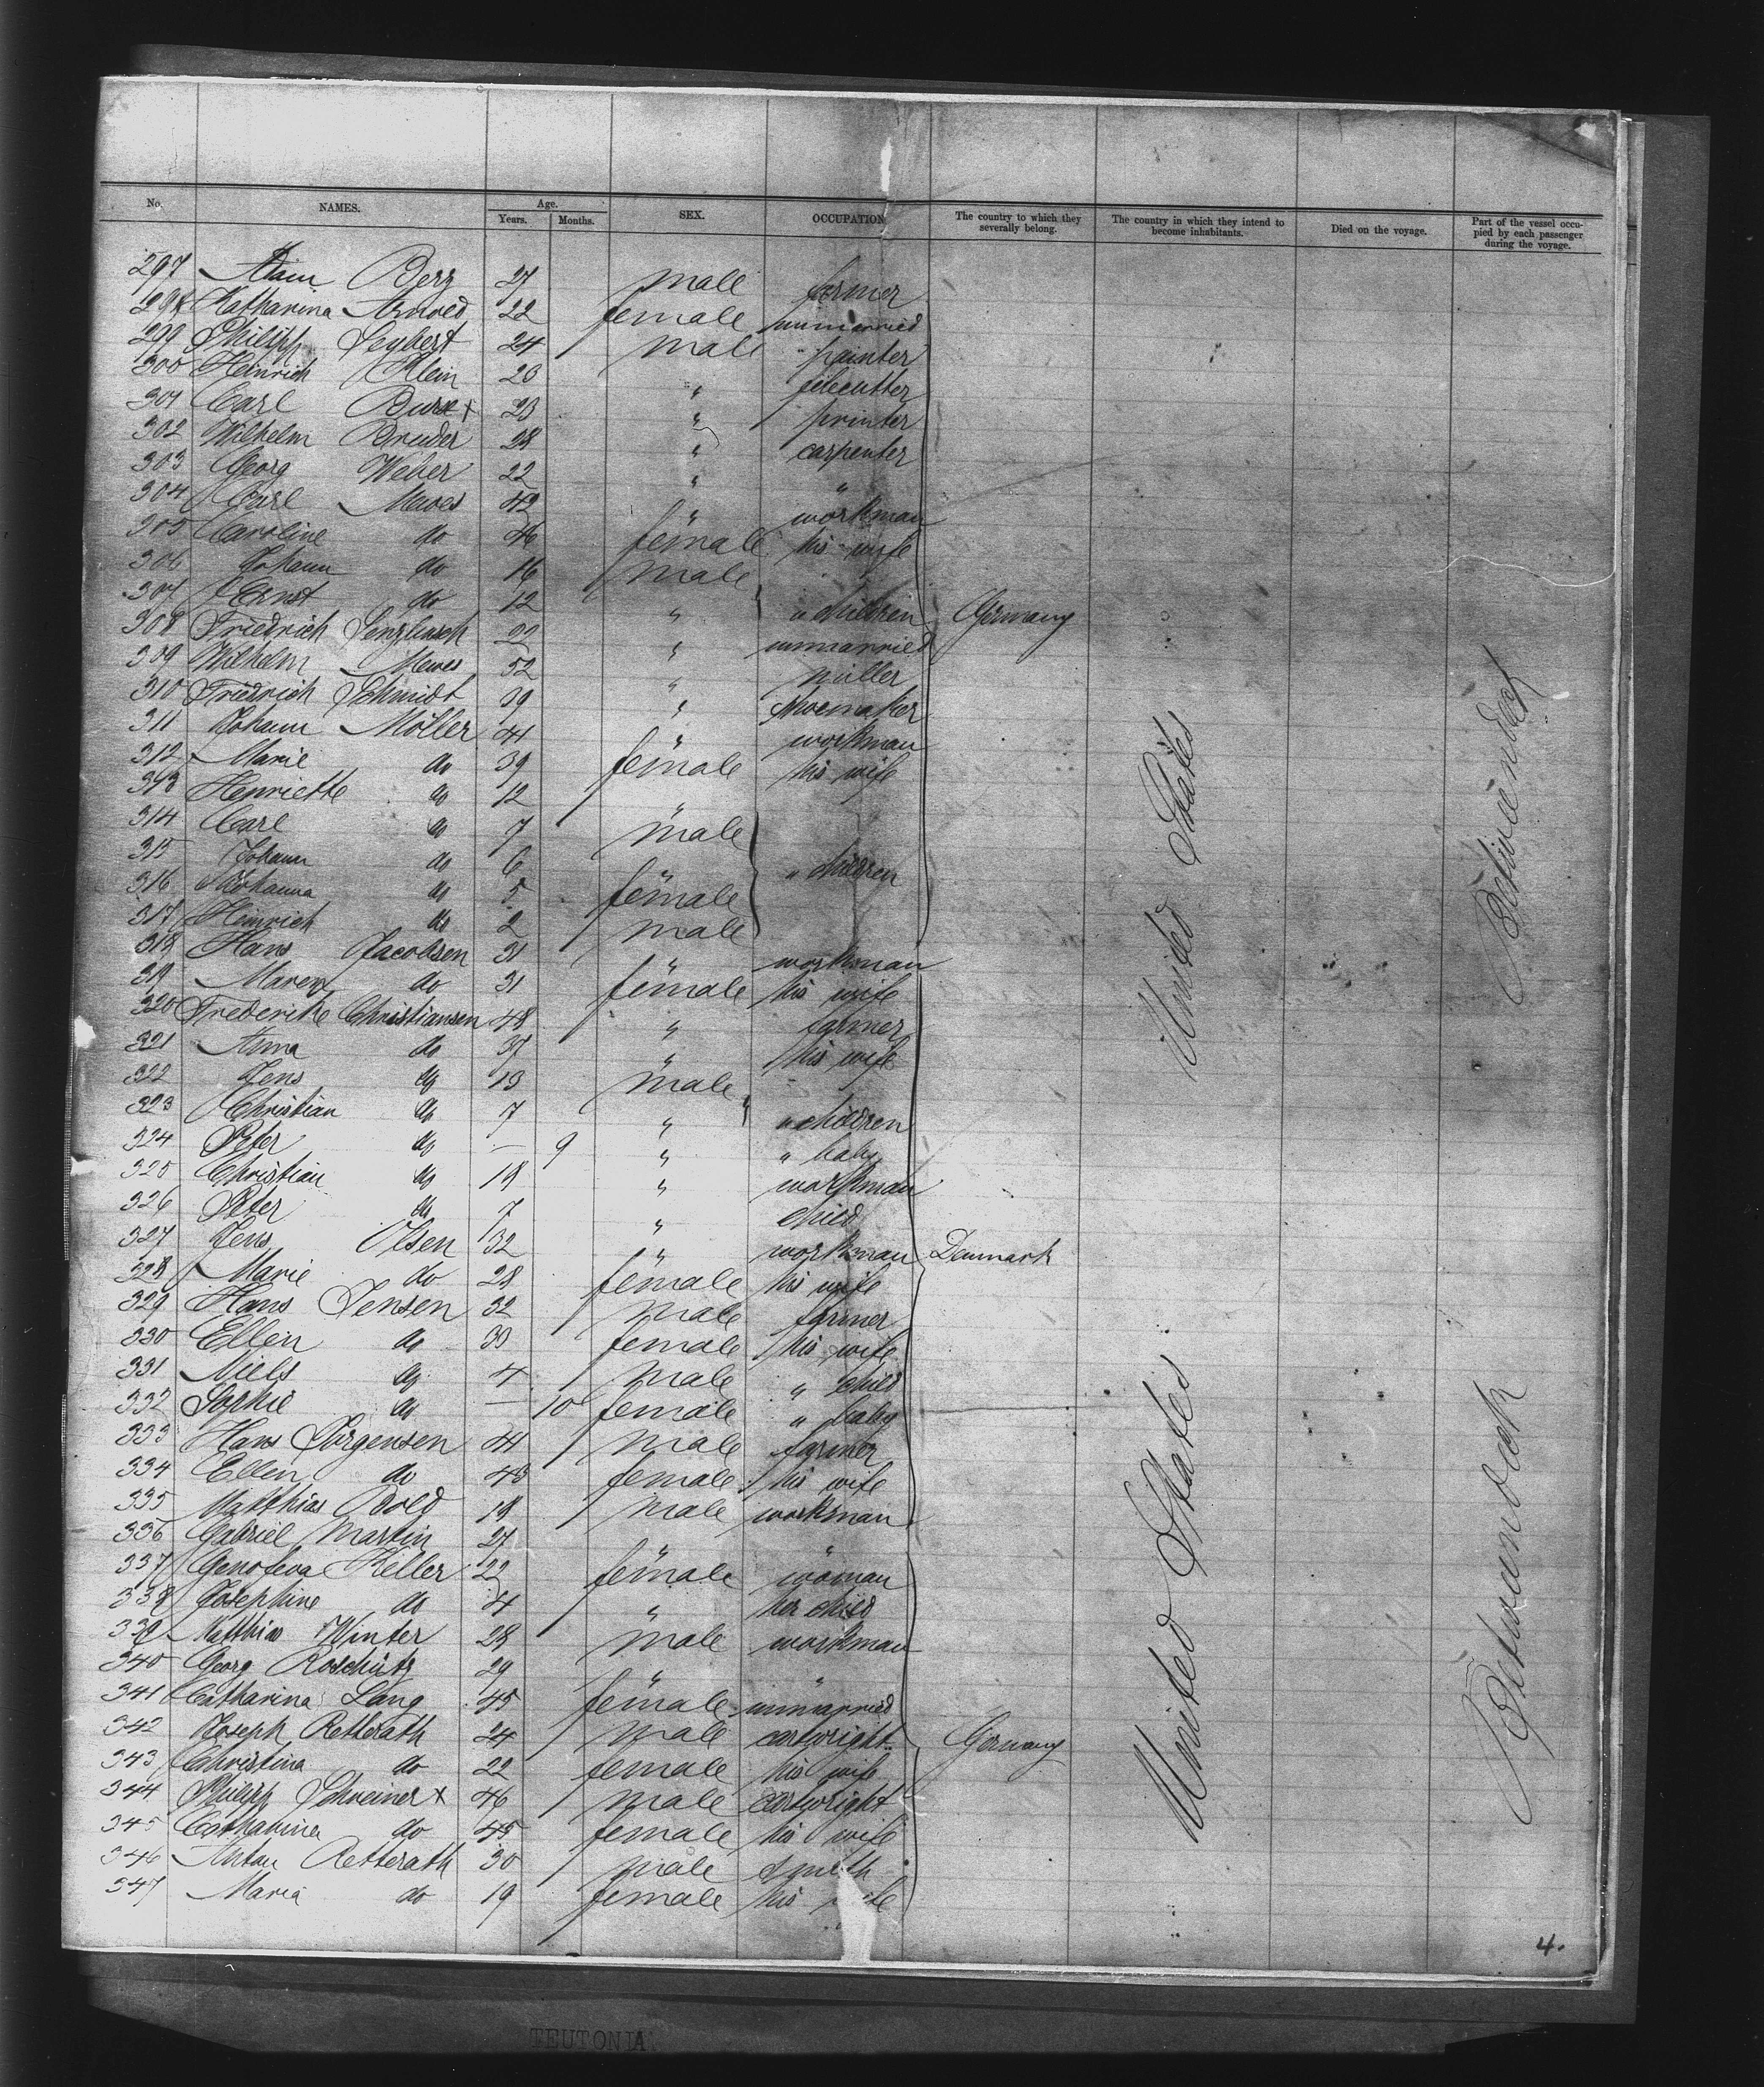 No. NAMES. Age. Years. Months. SEX. OCCUPATION The country to which they severally belong. The country in which they intend to become inhabitants. Died on the voyage. Part of the vessel occupied by each passenger during the voyage.
297 Berg 27 male farmer
298 Katharina Arnold 22 female unmarried
299 Philipp Seybert 24 male painter
300 Heinrich Klein 20 " filecutter
301 Carl 23 " printer
302 Wilhelm Bruder 28 " carpenter
303 Georg Weber 22 " "
304 Carl Mewes 42 " workman
305 Caroline do 46 female his wife
306 Johann do 16 male
307 Ernst do 12 " " children Germany
308 Friedrich 22 " unmarried
309 Wilhelm Mewes 52 " miller
310 Friedrich Schmidt 39 " shoemaker
311 Johann Möller 41 " workman
312 Marie do 39 female his wife
313 Henriette do 12 "
314 Carl do 7 male
315 Johann do 6 " " children
316 Johanna do 5 female
317 Heinrich do 2 male
318 Hans Jacobsen 31 " workman
319 Maren do 31 female his wife
320 Frederike Christiansen 48 " farmer
321 Anna do 37 " his wife
322 Jens do 13 male
323 Christian do 7 " " children
324 Peter do — 9 " " baby
325 Christian do 18 " workman
326 Peter do 7 " child
327 Jens Olsen 32 " workman Denmark
328 Marie do 28 female his wife
329 Hans Jensen 32 male farmer
330 Ellen do 33 female his wife
331 Niels do 4 male " child
332 Sophie do — 10 female " baby
333 Hans Jörgensen 41 male farmer
334 Ellen do 43 female his wife
335 Matthias Bold 18 male workman
336 Gabriel Martin 27 " "
337 Genofeva Keller 22 female woman
338 Josephine do 4 " her child
339 Matthias Winter 28 male workman
340 Georg Roschütz 29 " "
341 Catharina Lang 45 female unmarried
342 Joseph Retterath 24 male cartwright Germany
343 Christina do 22 female his wife
344 Philipp Schreiner x 46 male cartwright
345 Catharina do 45 female his wife
346 Anton Retterath 30 male smith
347 Maria do 19 female his wife
United States
Betweendeck
United States
Betweendeck
4.
TEUTONIA